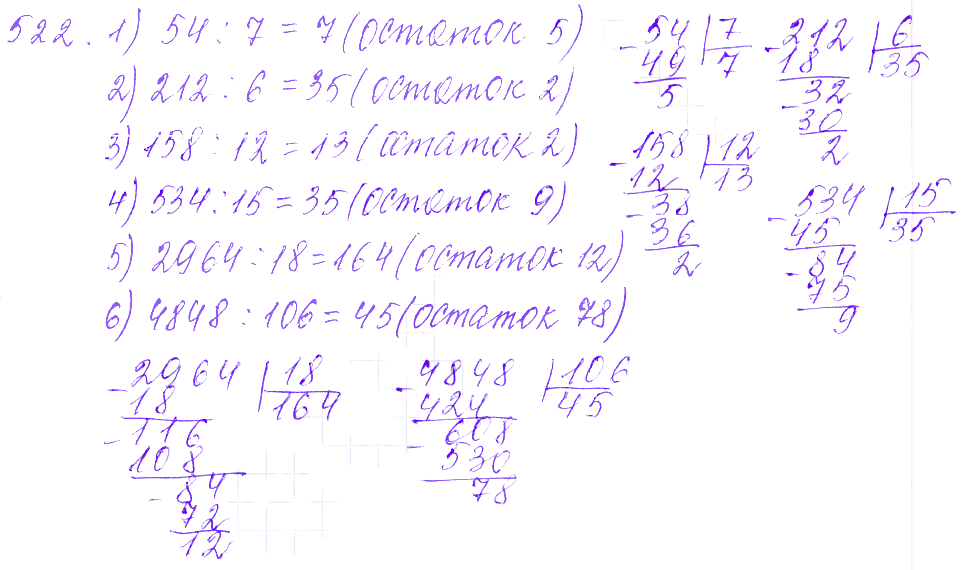 522. 1) 54 : 7 = 7 (остаток 5)
2) 212 : 6 = 35 (остаток 2)
3) 158 : 12 = 13 (остаток 2)
4) 534 : 15 = 35 (остаток 9)
5) 2964 : 18 = 164 (остаток 12)
6) 4848 : 106 = 45 (остаток 78)
-54 | 7
49 7
5
-212 | 6
18 35
-32
30
2
-158 | 12
12 13
-38
36
2
-534 | 15
45 35
-84
75
9
-2964 | 18
18 164
-116
108
-84
72
12
-4848 | 106
424 45
-608
530
78